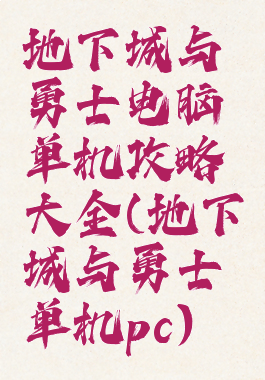 地下城与
勇士电脑
单机攻略
大全(地下
城与勇士
单机pc)